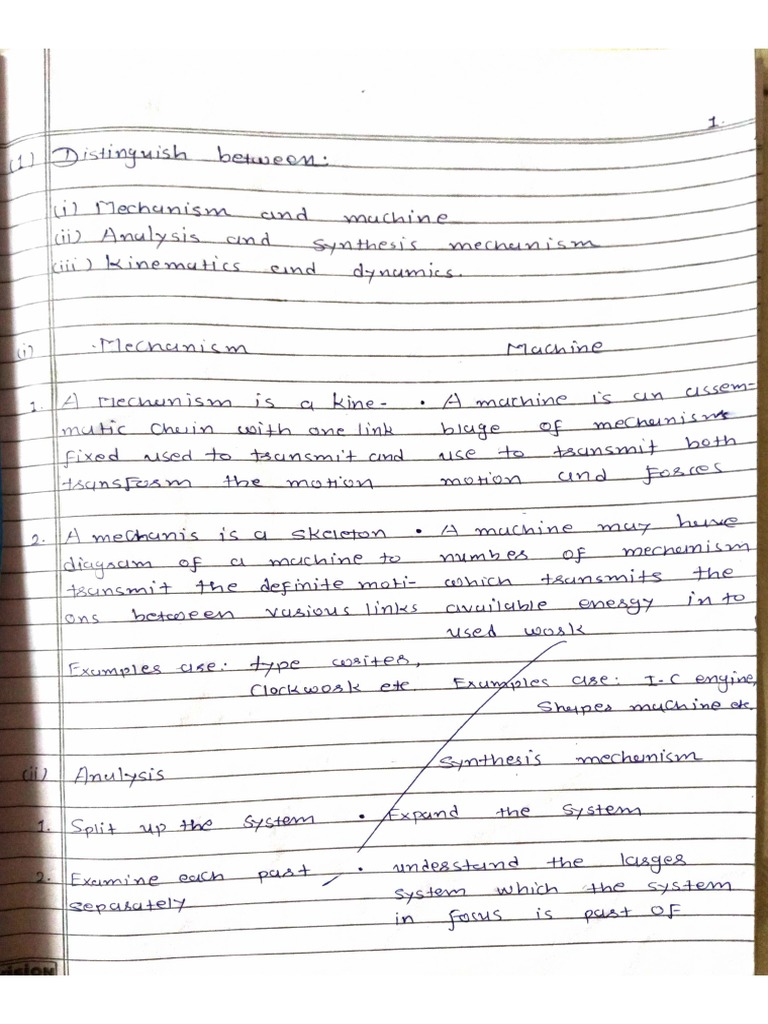 1.
(1) Distinguish between:
(i) Mechanism and machine
(ii) Analysis and synthesis mechanism
(iii) Kinematics and dynamics.
(i) Mechanism Machine
1. A Mechanism is a kine- • A machine is an assem-
matic chain with one link blage of mechanisms
fixed used to transmit and use to transmit both
transform the motion motion and forces
2. A mechanis is a skeleton • A machine may have
diagram of a machine to number of mechanism
transmit the definite moti- which transmits the
ons between various links available energy in to
used work
Examples are: type writer,
Clockwork etc. Examples are: I-C engine,
Shaper machine etc.
(ii) Analysis Synthesis mechanism
1. Split up the system • Expand the system
2. Examine each part • understand the larger
separately system which the system
in focus is part of